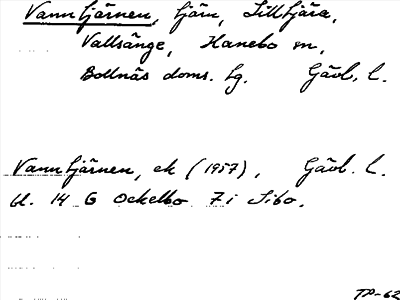 Vanntjärnen, tjärn, Lilltjära,
Vallsänge, Hanebo sn,
Bollnäs doms. tg. Gävl. l.
Vanntjärnen, ek (1957), Gävl. l.
bl. 14 G Ockelbo 7i Sibo.
TP-62